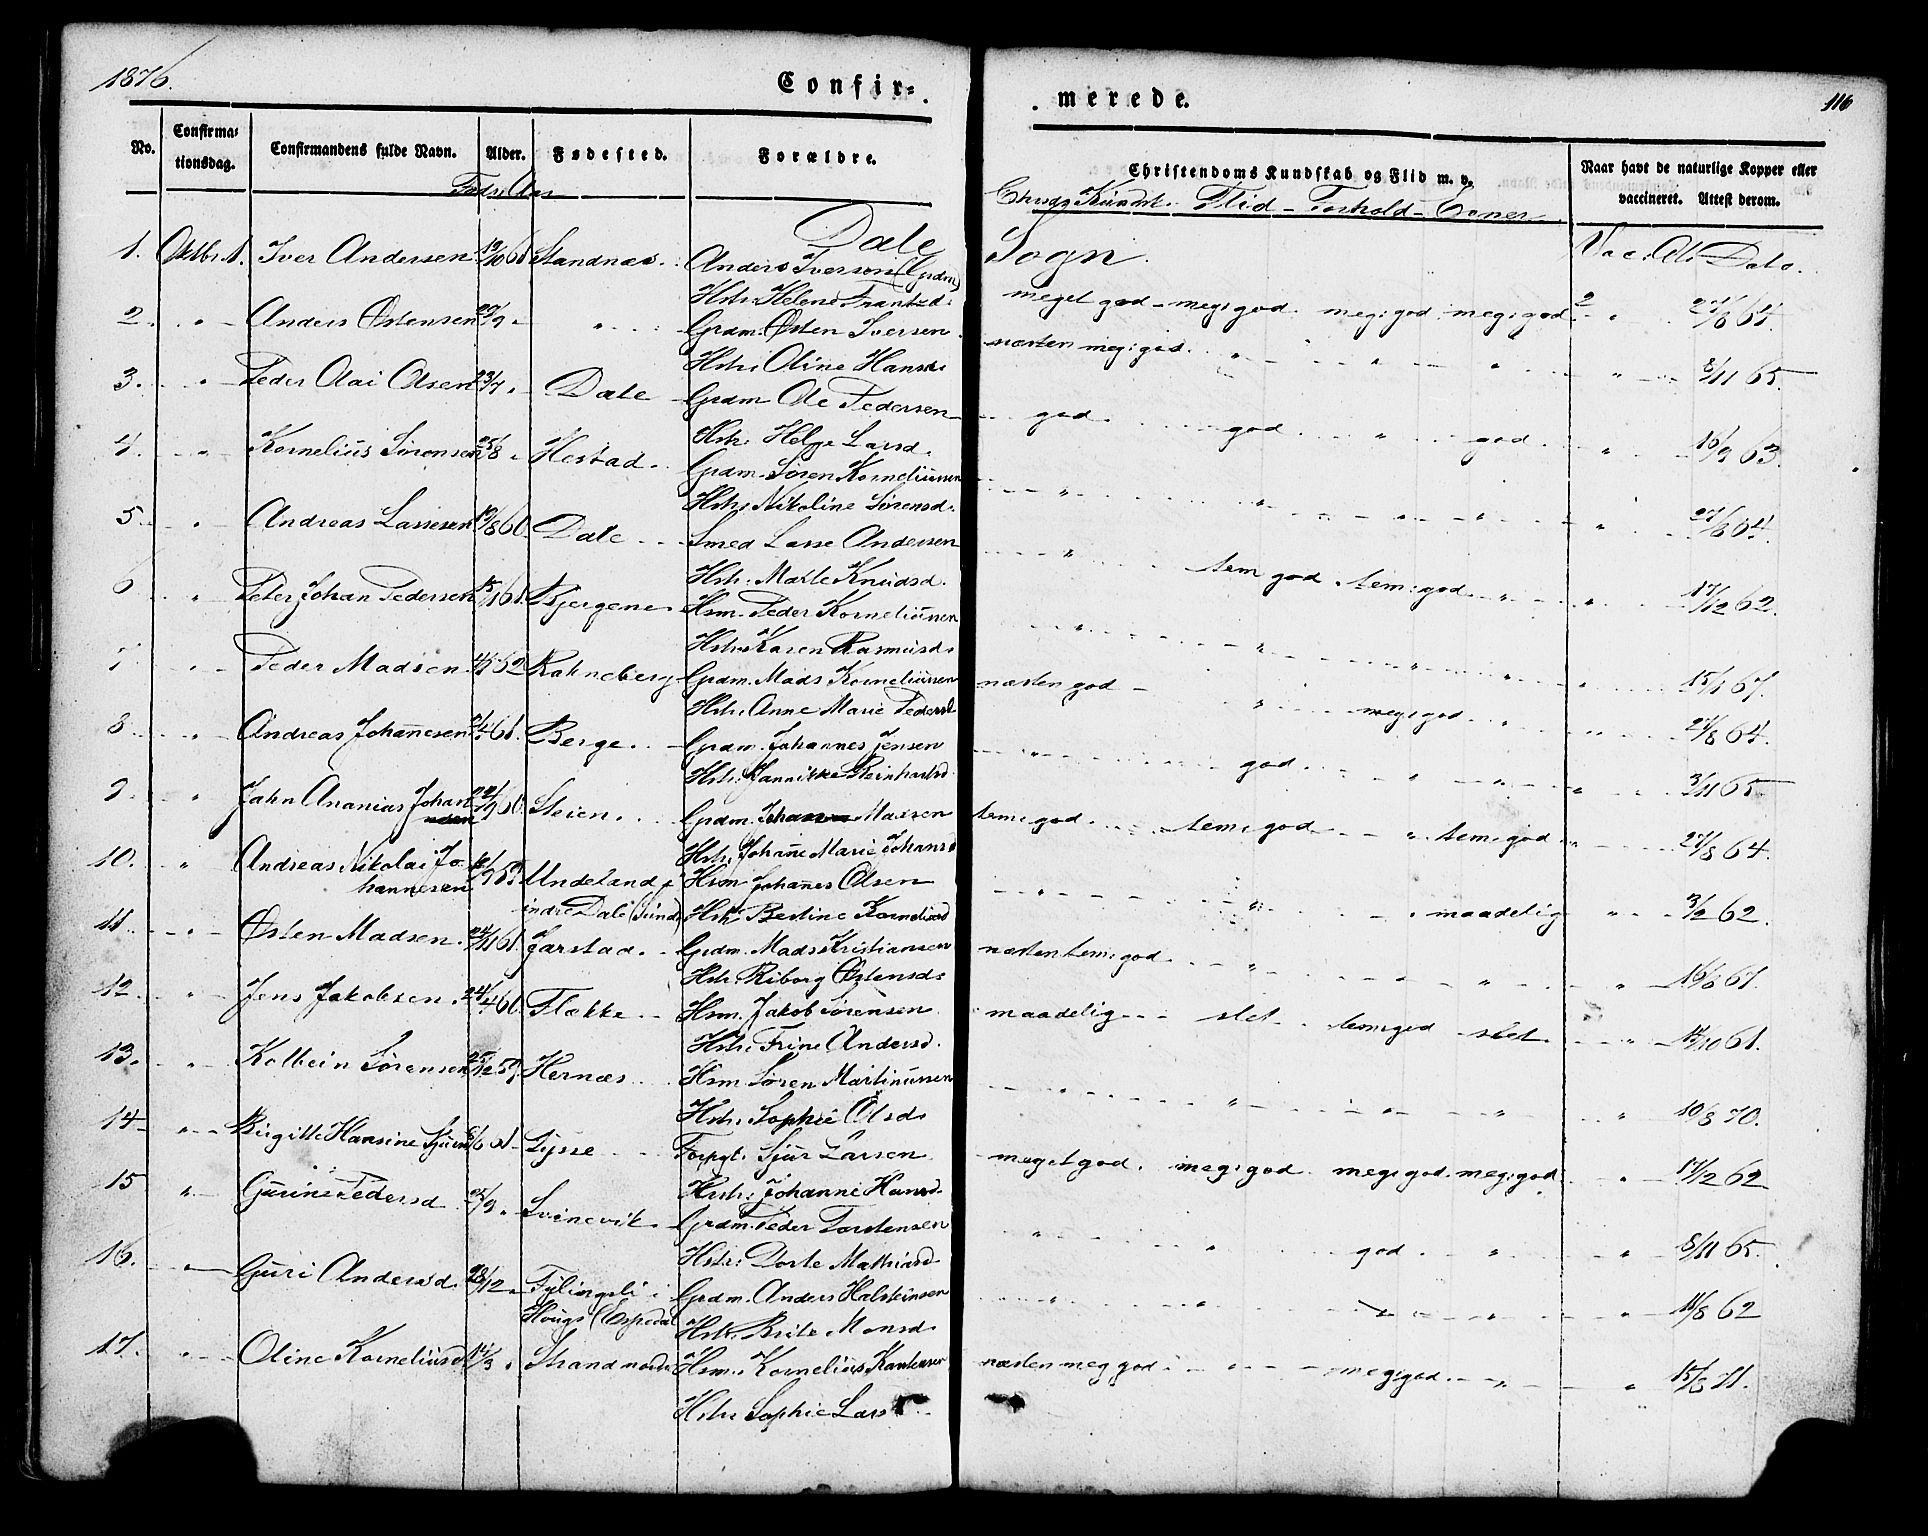 1876.
Confir=
merede.
116
No.
Confirma=
tionsdag.
Confirmandens fulde Navn.
Alder.
Fødested.
Forældre.
Christendoms Kundskab og Flid m. v.
Naar havt de naturlige Kopper eller
vaccineret. Attest derom.
Føds. Aar
Chrsd. Kundsk. Flid - Forhold - Evner
Dale Sogn.
Vac. At. Dato.
1. Oktbr. 1. Iver Andersen 19/10 61 Standnæs Anders Iversen (Grdm)
Hstr. Helene Frantsd.
meget god - meg. god. meg. god. meg. god 27/8 64.
2. " Anders Østensen 29/9 " " Grdm. Østen Iversen
Hstr. Oline Hansd.
næsten meg. god. " " " " 8/11 65.
3. " Peder Olai Olsen 23/7 " Dale Grdm Ole Pedersen
Hstr. Helge Larsd.
god. god. " god. " 16/9 63.
4. " Kornelius Sørensen 25/8 " Hestad Grdm. Søren Korneliussen
Hstr. Nikoline Sørensd.
" " " " " 27/8 64.
5. " Andreas Lassesen 19/8 60. Dale Smed Lasse Andersen
Hstr. Marte Knudsd.
" tem god. tem. god. " " 17/12 62.
6 " Peter Johan Pedersen 15/1 61. Bjergene Hsm. Peder Korneliussen
Hstr. Karen Rasmusd.
" " " " " 15/1 67.
7 " Peder Madsen 62 Rahneberg Grdm. Mads Korneliussen
Hstr. Anne Marie Pedersd.
næsten god - " meg. god. " " 27/8 64.
8 " Andreas Johannesen 61. Berge Grdm. Johannes Jensen
Hstr. Jannikke Reinhartsd.
" god. " " " 3/11 65.
9 " Jahn Ananias Johan
nesen 22/9 60. Steien. Grdm. Johan Madsen
Hstr. Johanne Marie Johansd
tem. god. tem. god " tem. god " 27/8 64.
10. " Andreas Nikolai Jo-
hannesen Undeland i
indre Dale (Sund) Hsm Johannes Olsen
Hstr. Bertine Kornelisd
" " " maadelig " 3/2 62.
11. " Østen Madsen. 24/11 61. Jarstad. Grdm. Mads Kristiansen
Hstr. Riborg Østensd.
næsten tem. god. " " " " 16/6 61.
12. " Jens Jakobsen. 24/4 60. Flekke Hsm. Jakob Sørensen
Hstr. Trine Andersd.
maadelig slet tem. god slet. " 15/10 61.
13. " Kolbein Sørensen 25/12 59. Hernæs Hsm. Søren Martinussen
Hstr. Sophie Olsd.
" " " " " 10/8 70.
14 " Birgitte Hansine Sjursd 61 Gjesse Forpgt. Sjur Larsen
Hstr. Johanne Hansd.
meget god. meg. god. meg. god. meg. god. " 17/2 62
15 " Gurine Pedersd 25/9 " Svinevik Grdm. Peder Torstensen
Hstr. Dorte Mathiasd.
" " god. " " 8/11 65.
16. " Guri Andersd. 28/12 " Fylingsli i
Hougs (Espedal Grdm. Anders Halsteinsen
Hstr. Brite Monsd.
" " " " " 18/8 62
17. " Oline Korneliusd 14/3 " Strand nordre Hsm. Kornelius Karstensen
Hstr. Sophie Lars
næsten meg god " meg. god. " " 15/3 71.